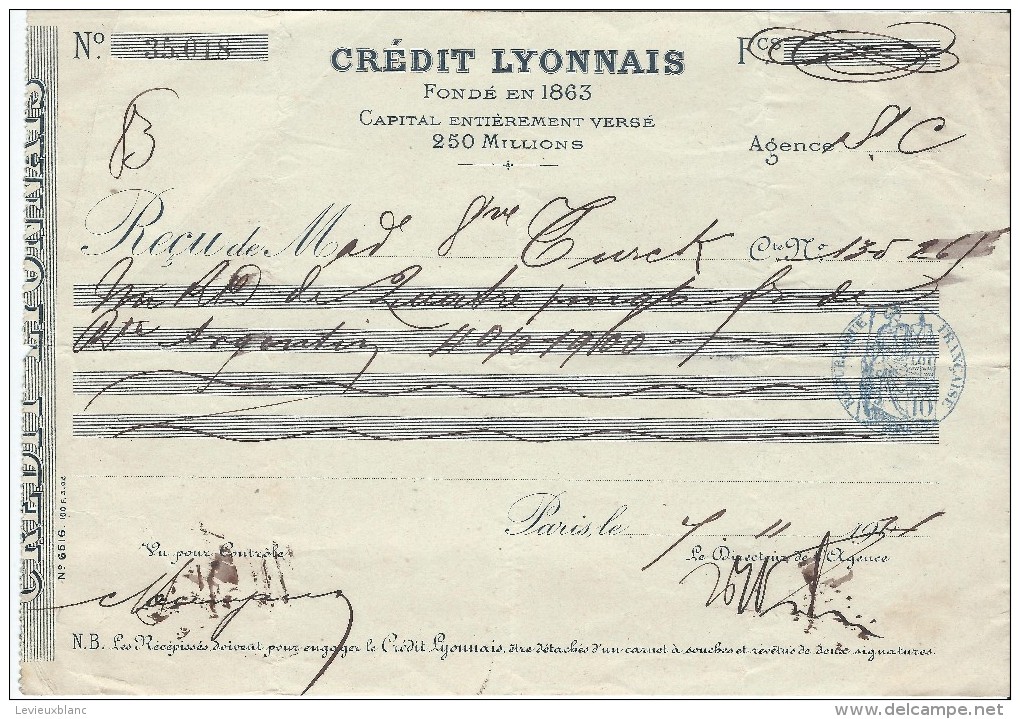 Nº 35.018
Fcs
CRÉDIT LYONNAIS
FONDÉ EN 1863
CAPITAL ENTIÈREMENT VERSÉ
250 MILLIONS
B
Agence S. C
Reçu de Mad Vve Turck Cte Nº 135
de Quatre vingts fr de
Rte Argentin 4 0/0 1900
RÉPUBLIQUE FRANÇAISE
10
CRÉDIT LYONNAIS
Nº 6516
Paris, le 7 11 19
Vu pour Contrôle
Le Directeur de l'Agence
N.B. Les Récépissés doivent pour engager le Crédit Lyonnais, être détachés d'un carnet à souches et revêtus de deux signatures.
Levieuxblanc
delcampe.net